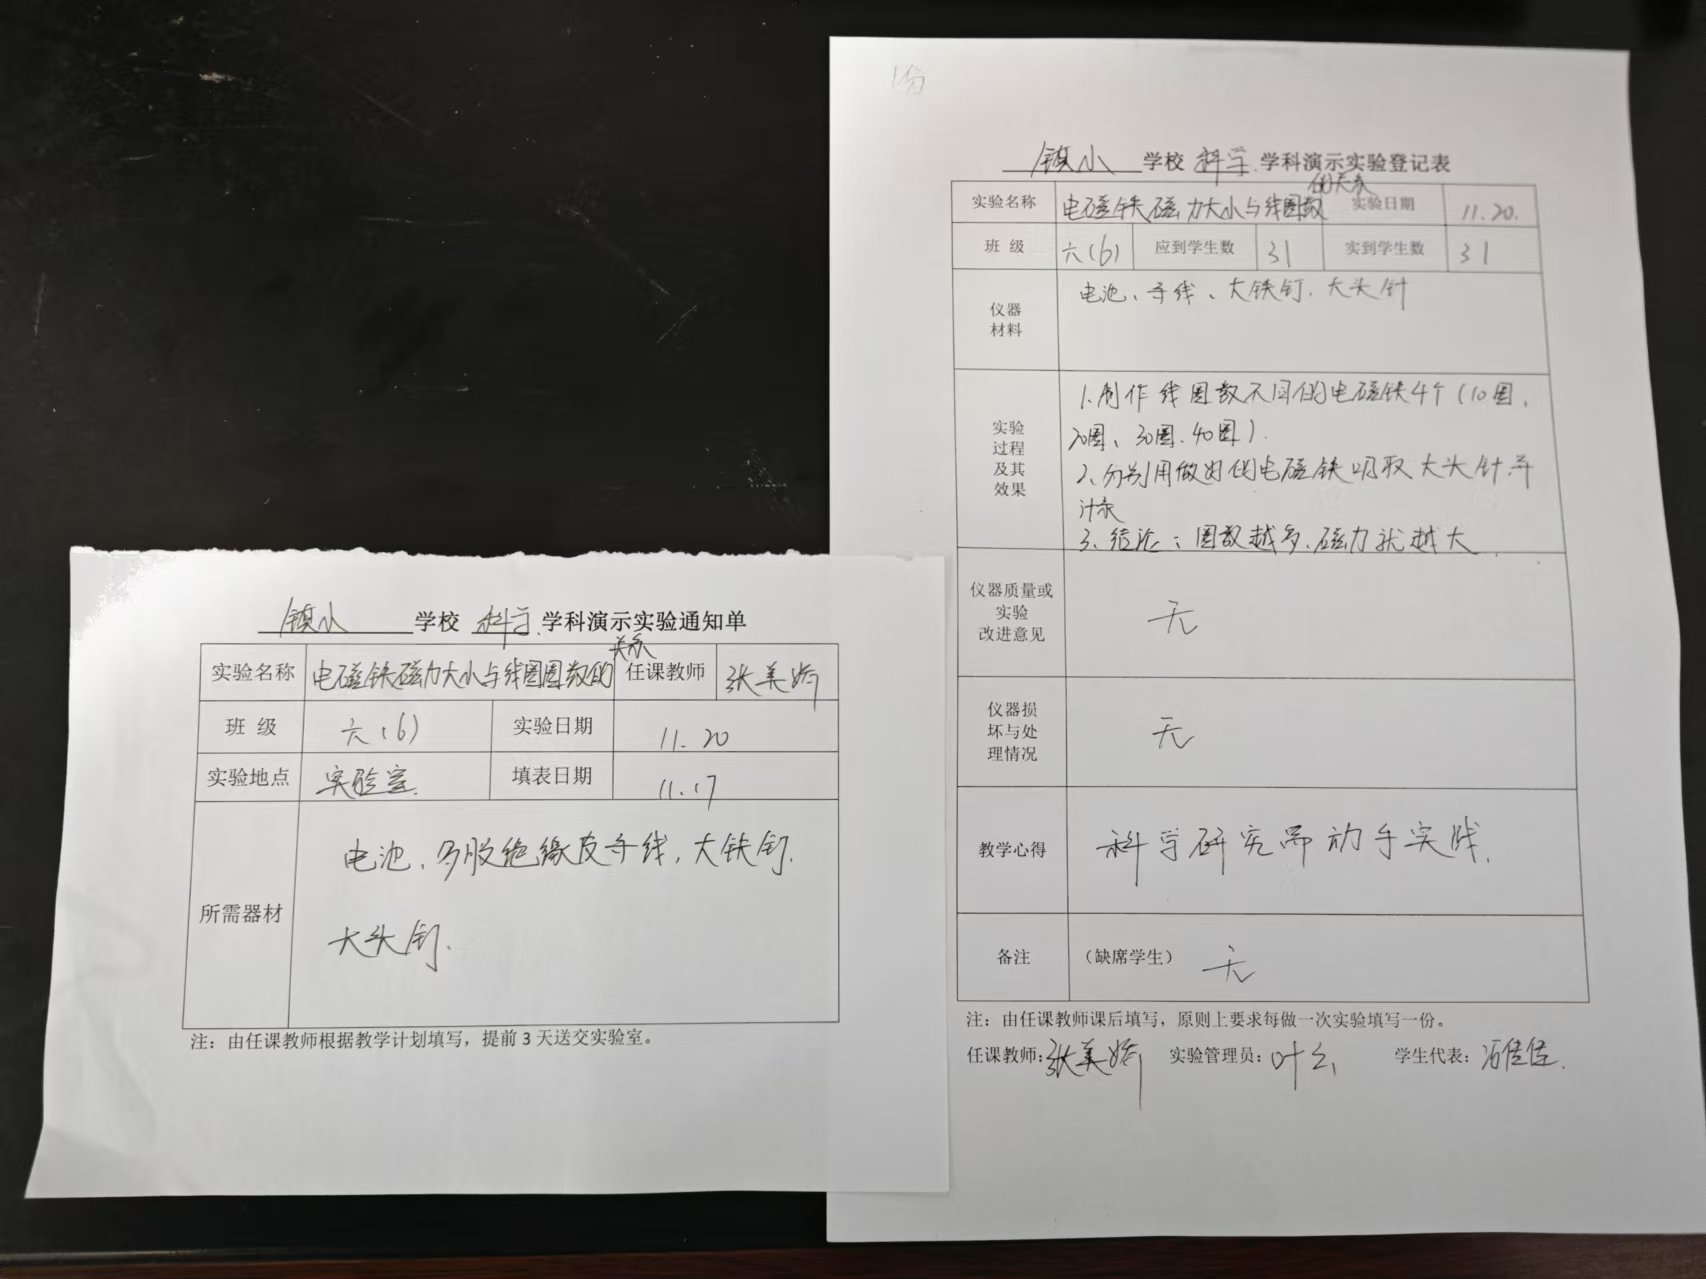 镇小 学校 科学 学科演示实验通知单
实验名称 电磁铁磁力大小与线圈圈数的关系 任课教师 张美娇
班 级 六(6) 实验日期 11.20
实验地点 实验室. 填表日期 11.17
所需器材
电池、多股绝缘皮导线,大铁钉.
大头钉.
注:由任课教师根据教学计划填写,提前3天送交实验室。
1份
镇小 学校 科学.学科演示实验登记表
实验名称 电磁铁磁力大小与线圈数的关系 实验日期 11.20.
班 级 六(6) 应到学生数 31 实到学生数 31
仪器
材料
电池、导线、大铁钉.大头针
实验
过程
及其
效果
1.制作线圈数不同的电磁铁4个(10圈、
20圈、30圈.40圈).
2、分别用做好的电磁铁吸取大头针并
计录
3、结论:圈数越多.磁力就越大
仪器质量或
实验
改进意见
无
仪器损
坏与处
理情况
无
教学心得 科学研究需动手实践.
备注 (缺席学生) 无
注:由任课教师课后填写,原则上要求每做一次实验填写一份。
任课教师:张美娇 实验管理员:叶 学生代表:佳佳.